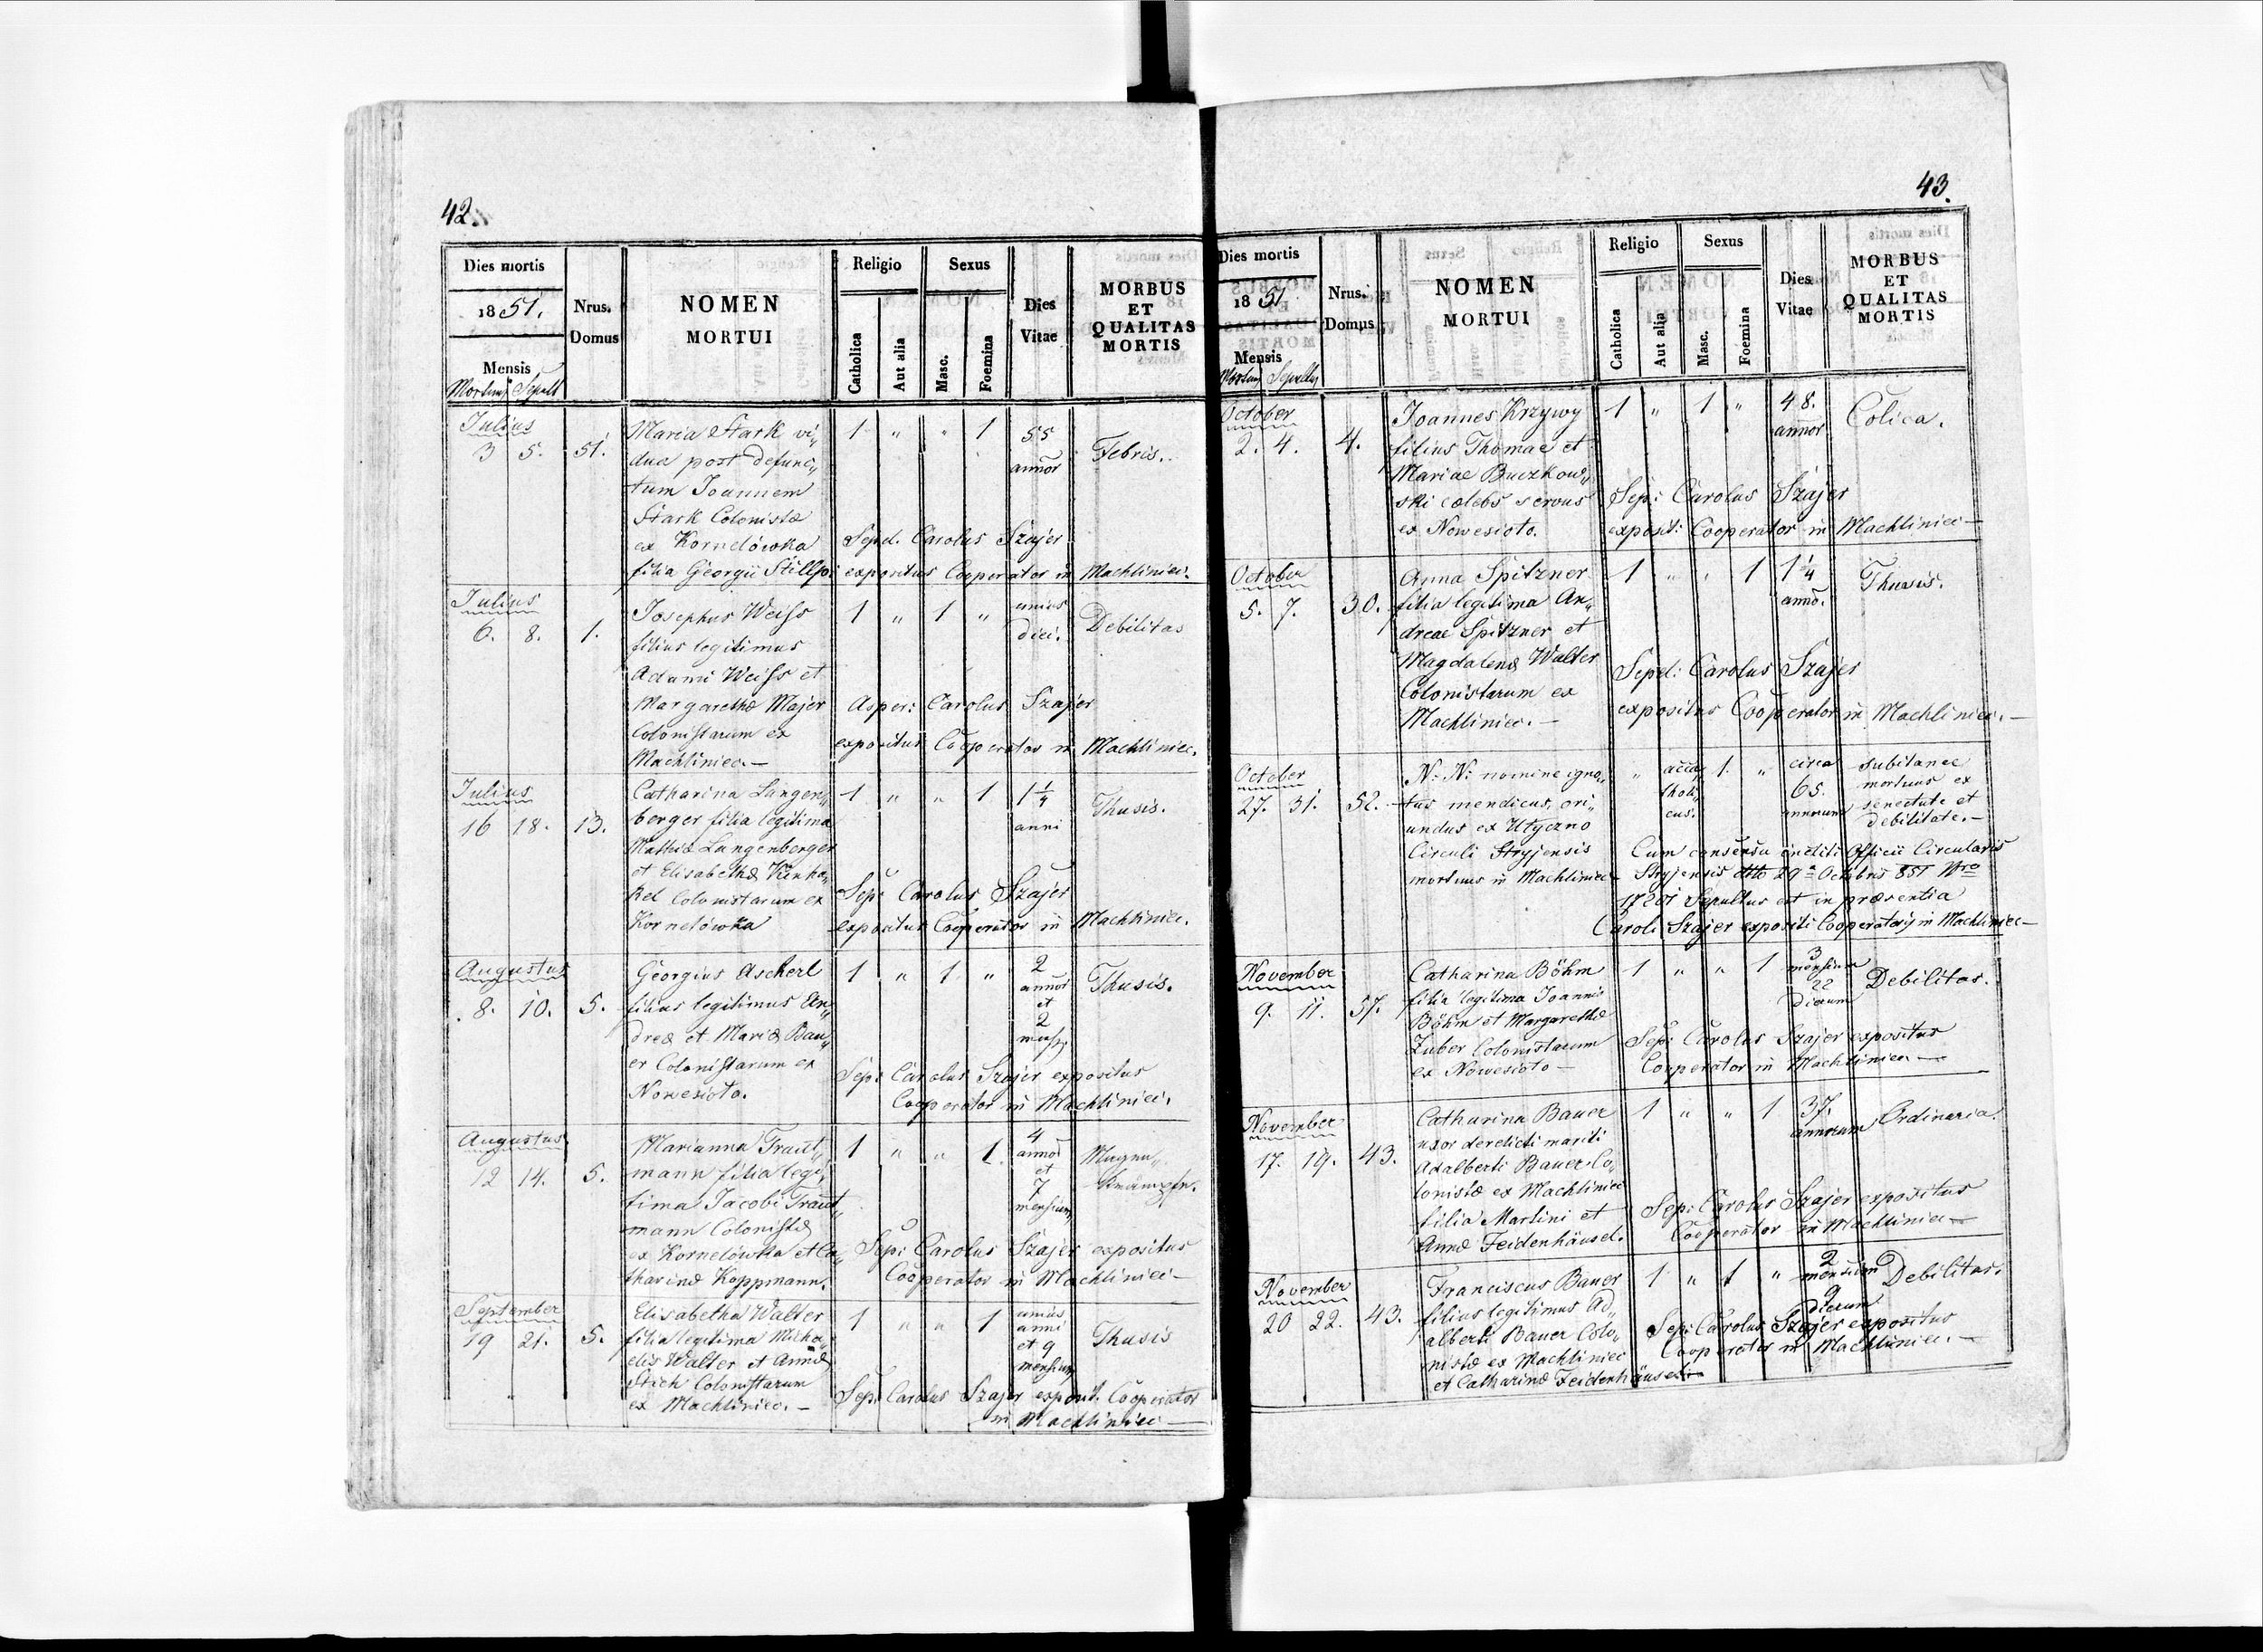 42.
Dies mortis
1851.
Mensis
Mortuus Sepult
Nrus. Domus
NOMEN
MORTUI
Religio
Catholica
Aut alia
Sexus
Masc.
Foemina
Dies
Vitae
MORBUS
ET
QUALITAS
MORTIS
Julius
3 5. 51.
Maria Stark vi„
dua post defunc„
tum Joannem
Stark Colonistæ
ex Kornelówka
filia Georgii
1 „ „ 1
55
annor
Febris.
Sepel. Carolus Szajer
expositus Cooperator in Machliniec.
Julius
6. 8. 1.
Josephus Weiss
filius legitimus
Adami Weiss et
Margarethæ Majer
Colonistarum ex
Machliniec. —
1 „ 1 „
unius
diei.
Debilitas
Asper: Carolus Szajer
expositus Cooperator in Machliniec.
Julius
16 18. 13.
Catharina Langen„
berger filia legitima
Mathiæ Langenberger
et Elisabethæ
Colonistarum ex
Kornelówka
1 „ „ 1
1 1/4
anni
Thusis.
Sep: Carolus Szajer
expositus Cooperator in Machliniec.
Augustus
8. 10. 5.
Georgius Ascherl
filius legitimus An„
dreæ et Mariæ Bau„
er Colonistarum ex
Nowesioto.
1 „ 1 „
2
annor
et
2
mens.
Thusis.
Sep: Carolus Szajer expositus
Cooperator in Machliniec.
Augustus
12 14. 5.
Marianna Traut„
mann filia legi„
tima Jacobi Traut„
mann Colonistæ
ex Kornelówka et Ca„
tharinæ Koppmann.
1 „ „ 1.
4
annor
et
7
mensium
Magen„
krämpfe.
Sep: Carolus Szajer expositus
Cooperator in Machliniec —
September
19 21. 5.
Elisabetha Walter
filia legitima Micha„
elis Walter et Annæ
Stich Colonistarum
ex Machliniec. —
1 „ „ 1
unius
anni
et 9
mensium
Thusis
Sep: Carolus Szajer exposit. Cooperator
in Machliniec —
43.
Dies mortis
1851
Mensis
Mortuus Sepultus
Nrus. Domus
NOMEN
MORTUI
Religio
Catholica
Aut alia
Sexus
Masc.
Foemina
Dies
Vitae
MORBUS
ET
QUALITAS
MORTIS
October
2. 4. 4.
Joannes Krzywy
filius Thomae et
Mariae Buczkow„
ski cælebs servus
ex Nowesioto.
1 „ 1 „
48.
annor
Colica.
Sep: Carolus Szajer
exposit: Cooperator in Machliniec —
October
5. 7. 30.
Anna Spitzner
filia legitima An„
dreae Spitzner et
Magdalenæ Walter
Colonistarum ex
Machliniec. —
1 „ „ 1
1 1/4
anno.
Thusis.
Sepel: Carolus Szajer
expositus Cooperator in Machliniec. —
October
27. 31. 52.
N: N: nomine igno„
tus mendicus, ori„
undus ex
Circuli Stryjensis
mortuus in Machliniec
„ acca„ 1. „
tholi„
cus.
circa
65.
annorum
subitanee
mortuus ex
senectute et
debilitate. —
Cum consensu inclyti Officii Circularis
Stryjensis dtto 29a Octobris 851 Nro
Sepultus est in præsentia
Caroli Szajer expositi Cooperatoris in Machliniec —
November
9. 11. 57.
Catharina Böhm
filia legitima Joannis
Böhm et Margarethæ
Zuber Colonistarum
ex Nowesioto —
1 „ „ 1
3
mensium
22
dierum
Debilitas.
Sep: Carolus Szajer expositus
Cooperator in Machliniec. —
November
17. 19. 43.
Catharina Bauer
uxor derelicti mariti
Adalberti Bauer Co„
lonistæ ex Machliniec
filia Martini et
Annæ Zeidenhäusel.
1 „ „ 1
37.
annorum
Ordinaria.
Sep: Carolus Szajer expositus
Cooperator in Machliniec —
November
20 22. 43.
Franciscus Bauer
filius legitimus Ad„
alberti Bauer Colo„
nistæ ex Machliniec
et Catharinæ Zeidenhäusel.
1 „ 1 „
2
mensium
9
dierum
Debilitas.
Sep: Carolus Szajer expositus
Cooperator in Machliniec. —